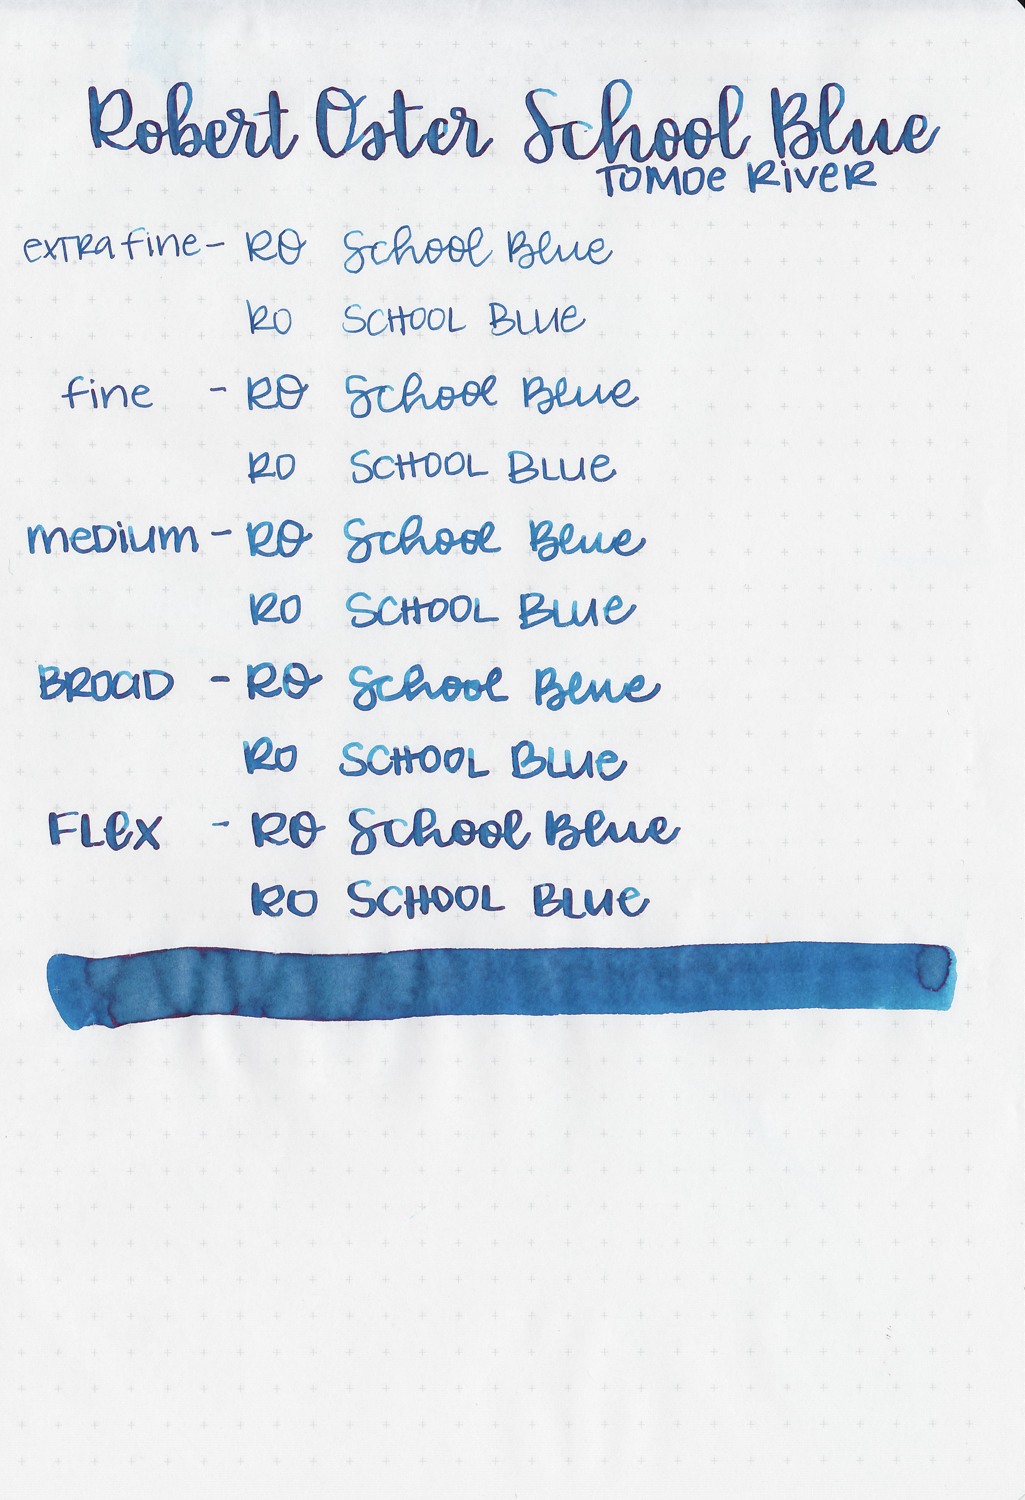 Robert Oster School Blue
Tomoe River
extra fine - RO School Blue
RO SCHOOL BLUE
fine - RO School Blue
RO SCHOOL BLUE
medium - RO School Blue
RO SCHOOL BLUE
BROAD - RO School Blue
RO SCHOOL BLUE
FLEX - RO School Blue
RO SCHOOL BLUE